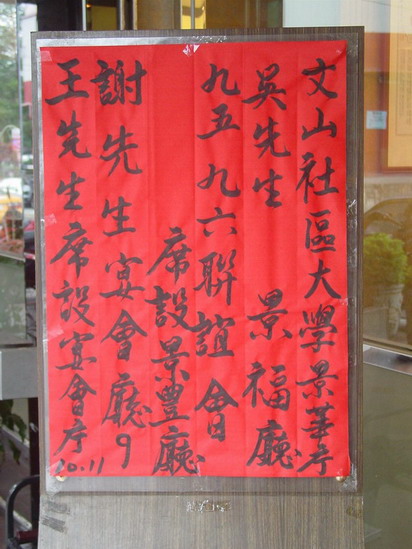 文山社區大學景華庁
吳先生 景福廳
九五九六聯誼會
席設景豐廳
謝先生宴會廳9
王先生席設宴會庁10.11